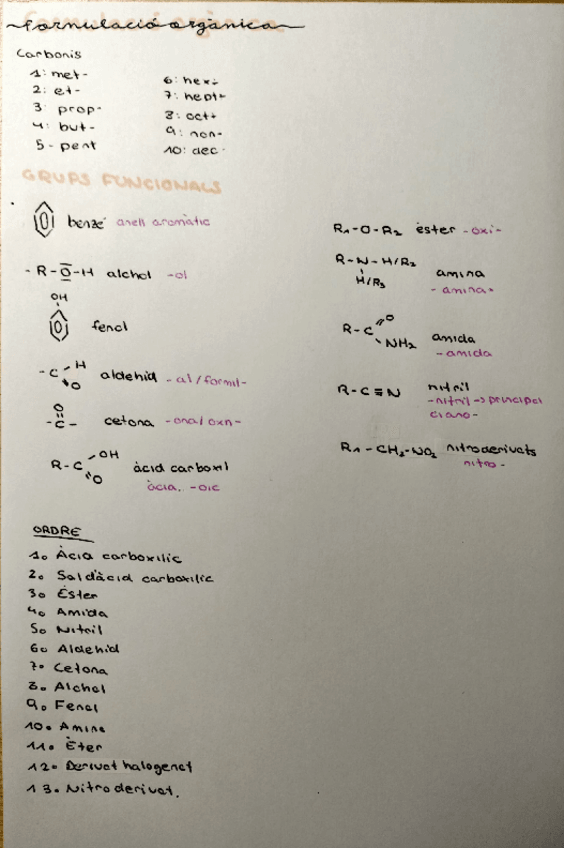 Formulació orgànica
Carbonis
1: met-
2: et-
3: prop-
4: but-
5- pent
6: hex-
7: hept-
8: oct-
9: non-
10: dec-
GRUPS FUNCIONALS
benzè anell aromàtic
-R-O-H alchol -ol
OH
fenol
-C H O aldehid -al/formil-
O
-C- cetona -ona/oxn-
R-C OH O àcid carboxil
àcid, -oic
R1-O-R2 èster -oxi-
R-N-H/R2 amina
H/R3 -amina-
R-C O NH2 amida
-amida
R-C≡N nitril
-nitril→principal
ciano-
R1-CH2-NO2 nitroderivats
nitro-
ORDRE
1. Àcid carboxílic
2. Sal d'àcid carboxílic
3. Èster
4. Amida
5. Nitril
6. Aldehid
7. Cetona
8. Alchol
9. Fenol
10. Amina
11. Èter
12. Derivat halogenat
13. Nitroderivat.